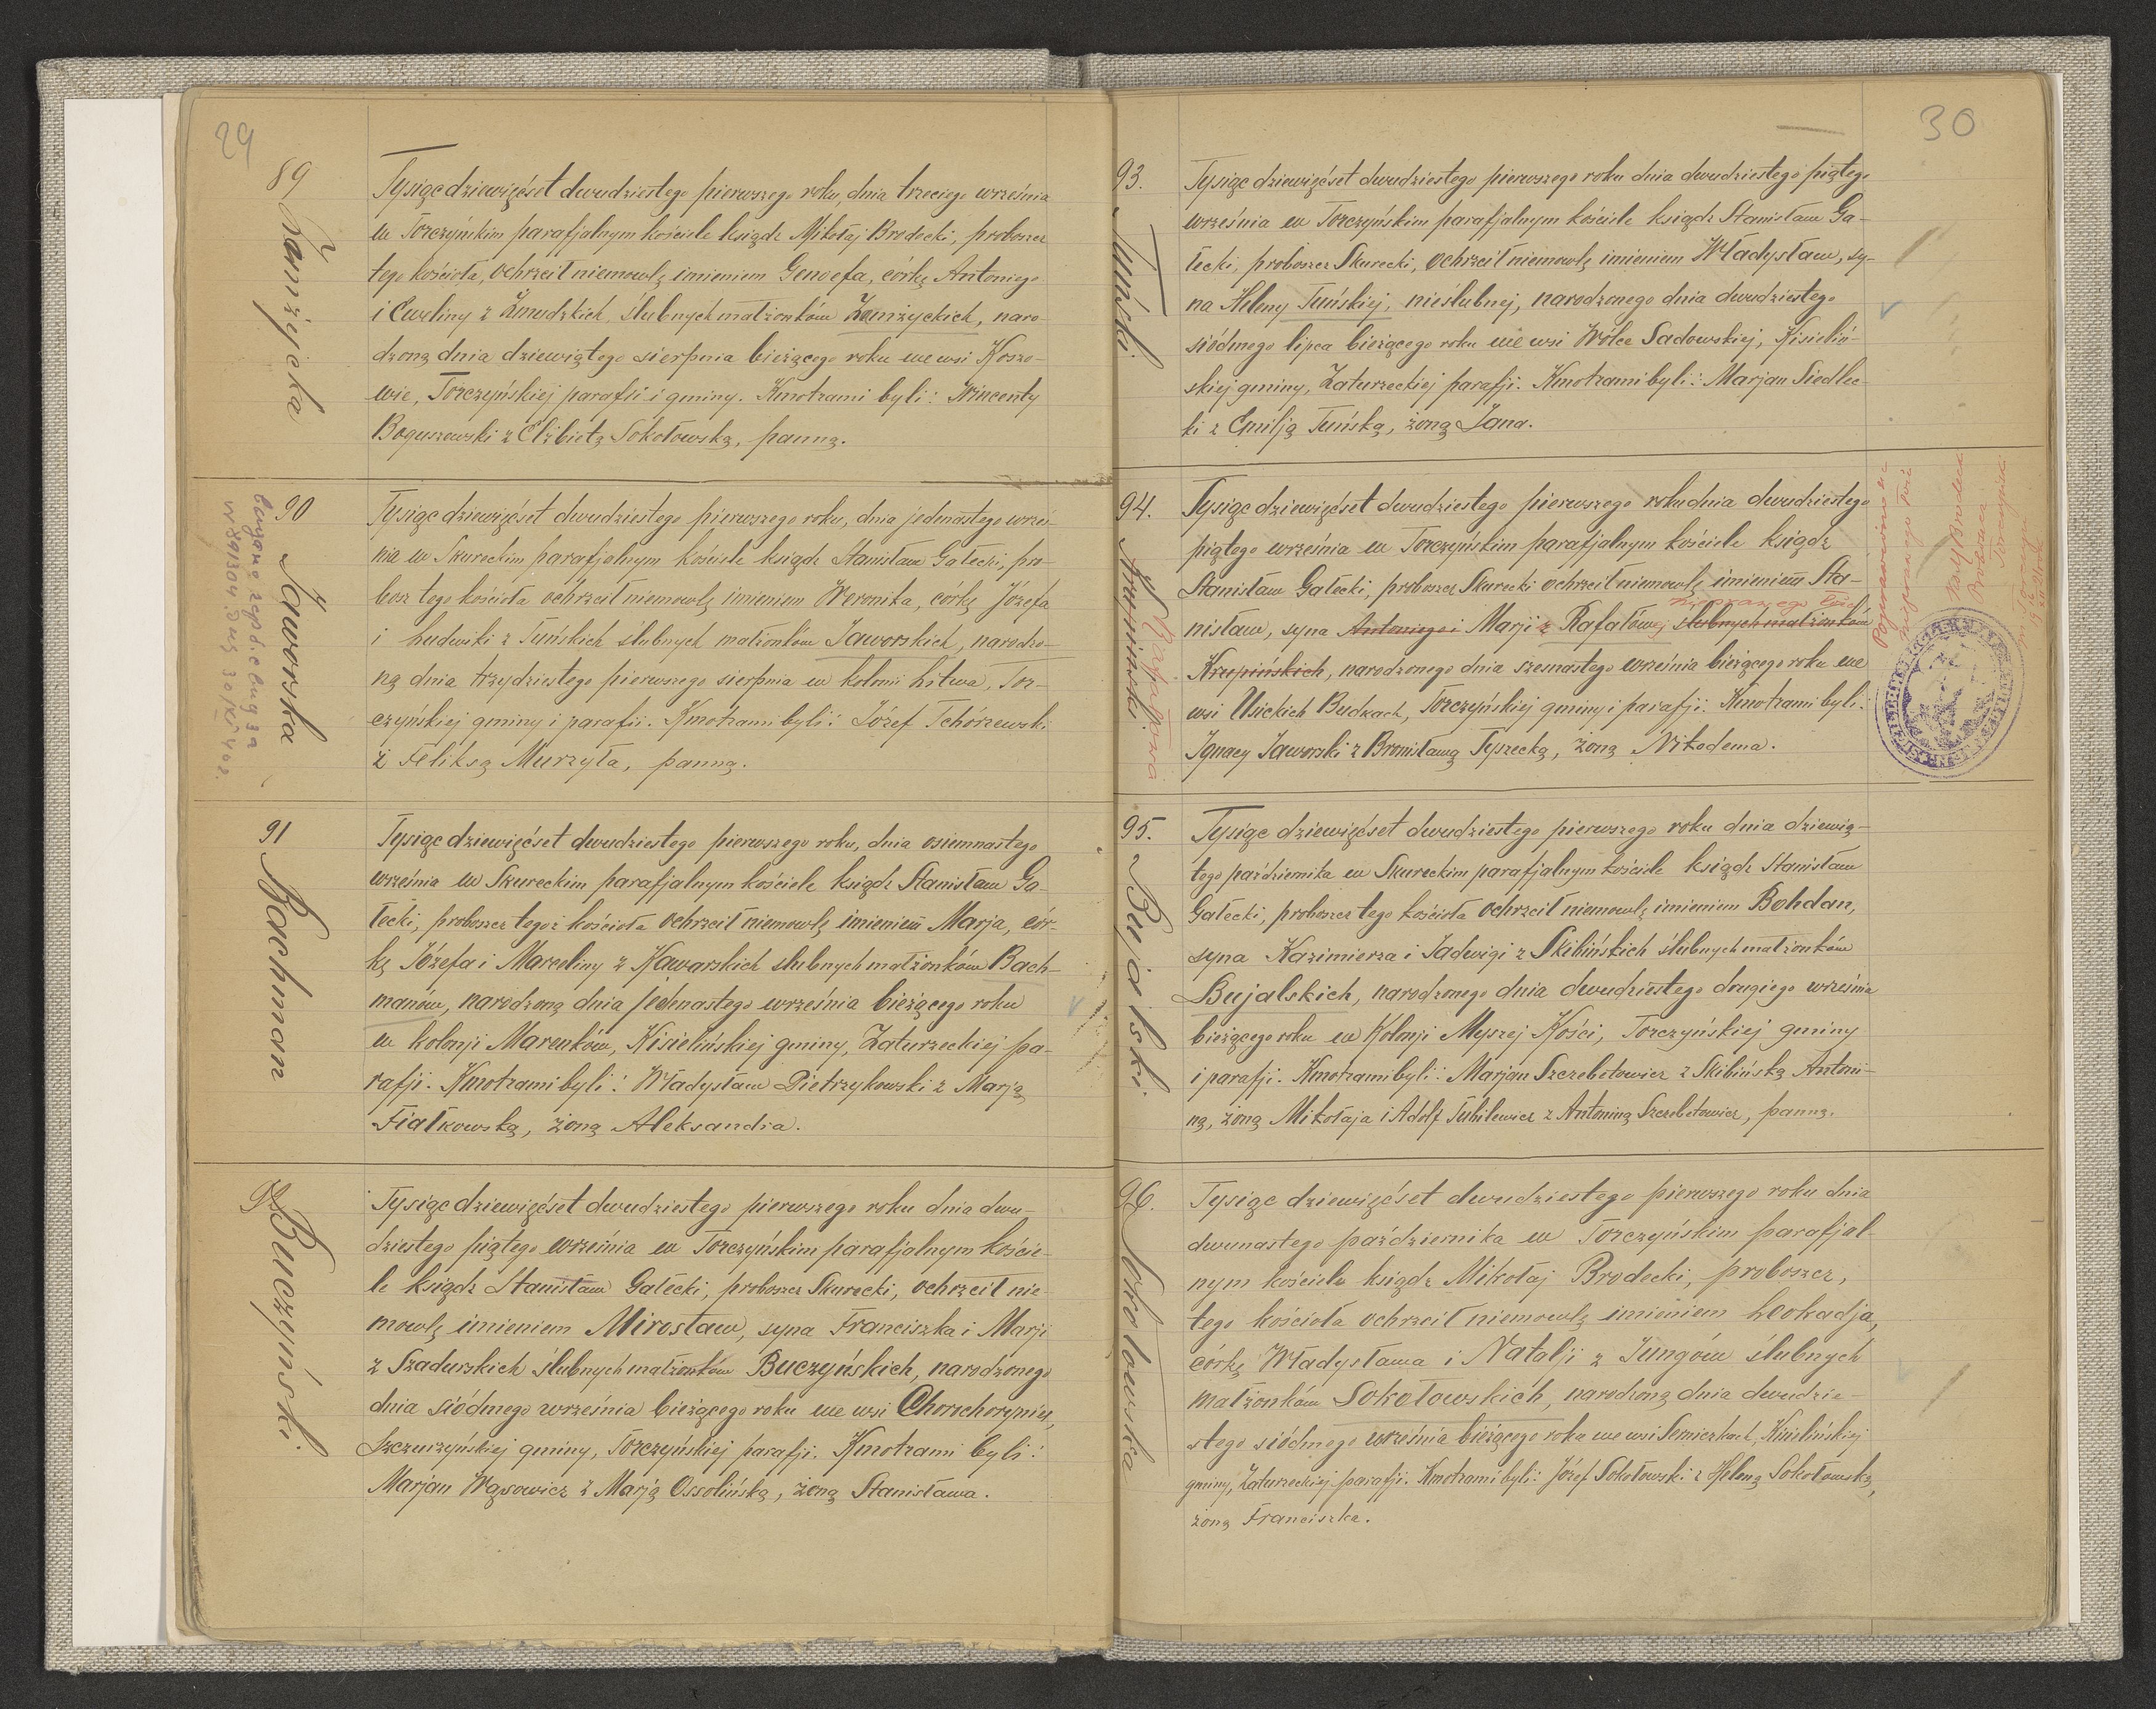 29
89
Zamżycka
Tysiąc dziewięćset dwudziestego pierwszego roku, dnia trzeciego września
w Torczyńskim parafjalnym kościele ksiądz Mikołaj Brodecki, proboszcz
tego kościoła, ochrzcił niemowlę imieniem Genoefa, córkę Antoniego
i Eweliny z Żmudzkich ślubnych małżonków Zamżyckich, naro-
dzoną dnia dziewiątego sierpnia bieżącego roku we wsi Koszo-
wie, Torczyńskiej parafii i gminy. Kmotrami byli: Wincenty
Boguszewski z Elżbietą Sokołowską, panną.
90
Jaworska
Tysiąc dziewięćset dwudziestego pierwszego roku, dnia jedenastego wrześ-
nia w Skureckim parafjalnym kościele ksiądz Stanisław Gałecki, pro-
bosz tego kościoła ochrzcił niemowlę imieniem Weronika, córkę Józefa
i Ludwiki z Tuńskich ślubnych małżonków Jaworskich, narodzo-
ną dnia trzydziestego pierwszego sierpnia w kolonii Litwa, Tor-
czyńskiej gminy i parafii. Kmotrami byli: Józef Tchórzewski
z Feliksą Murzyła, panną.
91
Bachman
Tysiąc dziewięćset dwudziestego pierwszego roku, dnia osiemnastego
września w Skureckim parafjalnym kościele ksiądz Stanisław Ga-
łecki, proboszcz tegoż kościoła ochrzcił niemowlę imieniem Marja, cór-
kę Józefa i Marceliny z Kawarskich ślubnych małżonków Bach-
manów, narodzoną dnia jedenastego września bieżącego roku
w kolonji Marenków, Kisielińskiej gminy, Zaturzeckiej pa-
rafji. Kmotrami byli: Władysław Pietrzykowski z Marją
Fiałkowską, żoną Aleksandra.
92
Buczyński
Tysiąc dziewięćset dwudziestego pierwszego roku dnia dwu-
dziestego piątego września w Torczyńskim parafjalnym koście-
le ksiądz Stanisław Gałecki, proboszcz Skurecki, ochrzcił nie-
mowlę imieniem Mirosław, syna Franciszka i Marji
z Szadurskich ślubnych małżonków Buczyńskich, narodzonego
dnia siódmego września bieżącego roku we wsi Chorochorynie,
Szczurzyńskiej gminy, Torczyńskiej parafji. Kmotrami byli:
Marjan Wąsowicz z Marją Ossolińską, żoną Stanisława.
30
93.
Tuński
Tysiąc dziewięćset dwudziestego pierwszego roku dnia dwudziestego piątego
września w Torczyńskim parafjalnym kościele ksiądz Stanisław Ga-
łecki, proboszcz Skurecki, ochrzcił niemowlę imieniem Władysław, sy-
na Heleny Tuńskiej, nieślubnej, narodzonego dnia dwudziestego
siódmego lipca bieżącego roku we wsi Wólce Sadowskiej, Kisieliń-
skiej gminy, Zaturzeckiej parafji. Kmotrami byli: Marjan Siedlec-
ki z Emilją Tuńską, żoną Jana.
94.
Krzepiński
Rafałowa
Tysiąc dziewięćset dwudziestego pierwszego roku dnia dwudziestego
piątego września w Torczyńskim parafjalnym kościele ksiądz
Stanisław Gałecki, proboszcz Skurecki ochrzcił niemowlę imieniem Sta-
nisław, syna Antoniego i Marji z Rafałów ślubnych małżonków
Krzepińskich, narodzonego dnia szesnastego września bieżącego roku we
wsi Usickich Budkach, Torczyńskiej gminy i parafji. Kmotrami byli:
Ignacy Jaworski z Bronisławą Tyszecką, żoną Nikodema.
95.
Bujalski.
Tysiąc dziewięćset dwudziestego pierwszego roku dnia dziewią-
tego października w Skureckim parafjalnym kościele ksiądz Stanisław
Gałecki, proboszcz tego kościoła ochrzcił niemowlę imieniem Bohdan,
syna Kazimierza i Jadwigi z Skibińskich ślubnych małżonków
Bujalskich, narodzonego dnia dwudziestego drugiego września
bieżącego roku w Kolonji Myszej Kości, Torczyńskiej gminy
i parafji. Kmotrami byli: Marjan Szczebetowicz z Skibińską Antoni-
ną, żoną Mikołaja i Adolf Tubilewicz z Antoniną Szczebetowicz, panną.
96.
Sokołowska
Tysiąc dziewięćset dwudziestego pierwszego roku dnia
dwunastego października w Torczyńskim parafjal-
nym kościele ksiądz Mikołaj Brodecki, proboszcz,
tego kościoła ochrzcił niemowlę imieniem Leokadja,
córkę Władysława i Natalji z Jungów ślubnych
małżonków Sokołowskich, narodzoną dnia dwudzie-
stego siódmego września bieżącego roku we wsi Serniczkach, Kisielińskiej
gminy, Zaturzeckiej parafji. Kmotrami byli: Józef Sokołowski z Heleną Sokołowską,
żoną Franciszka.